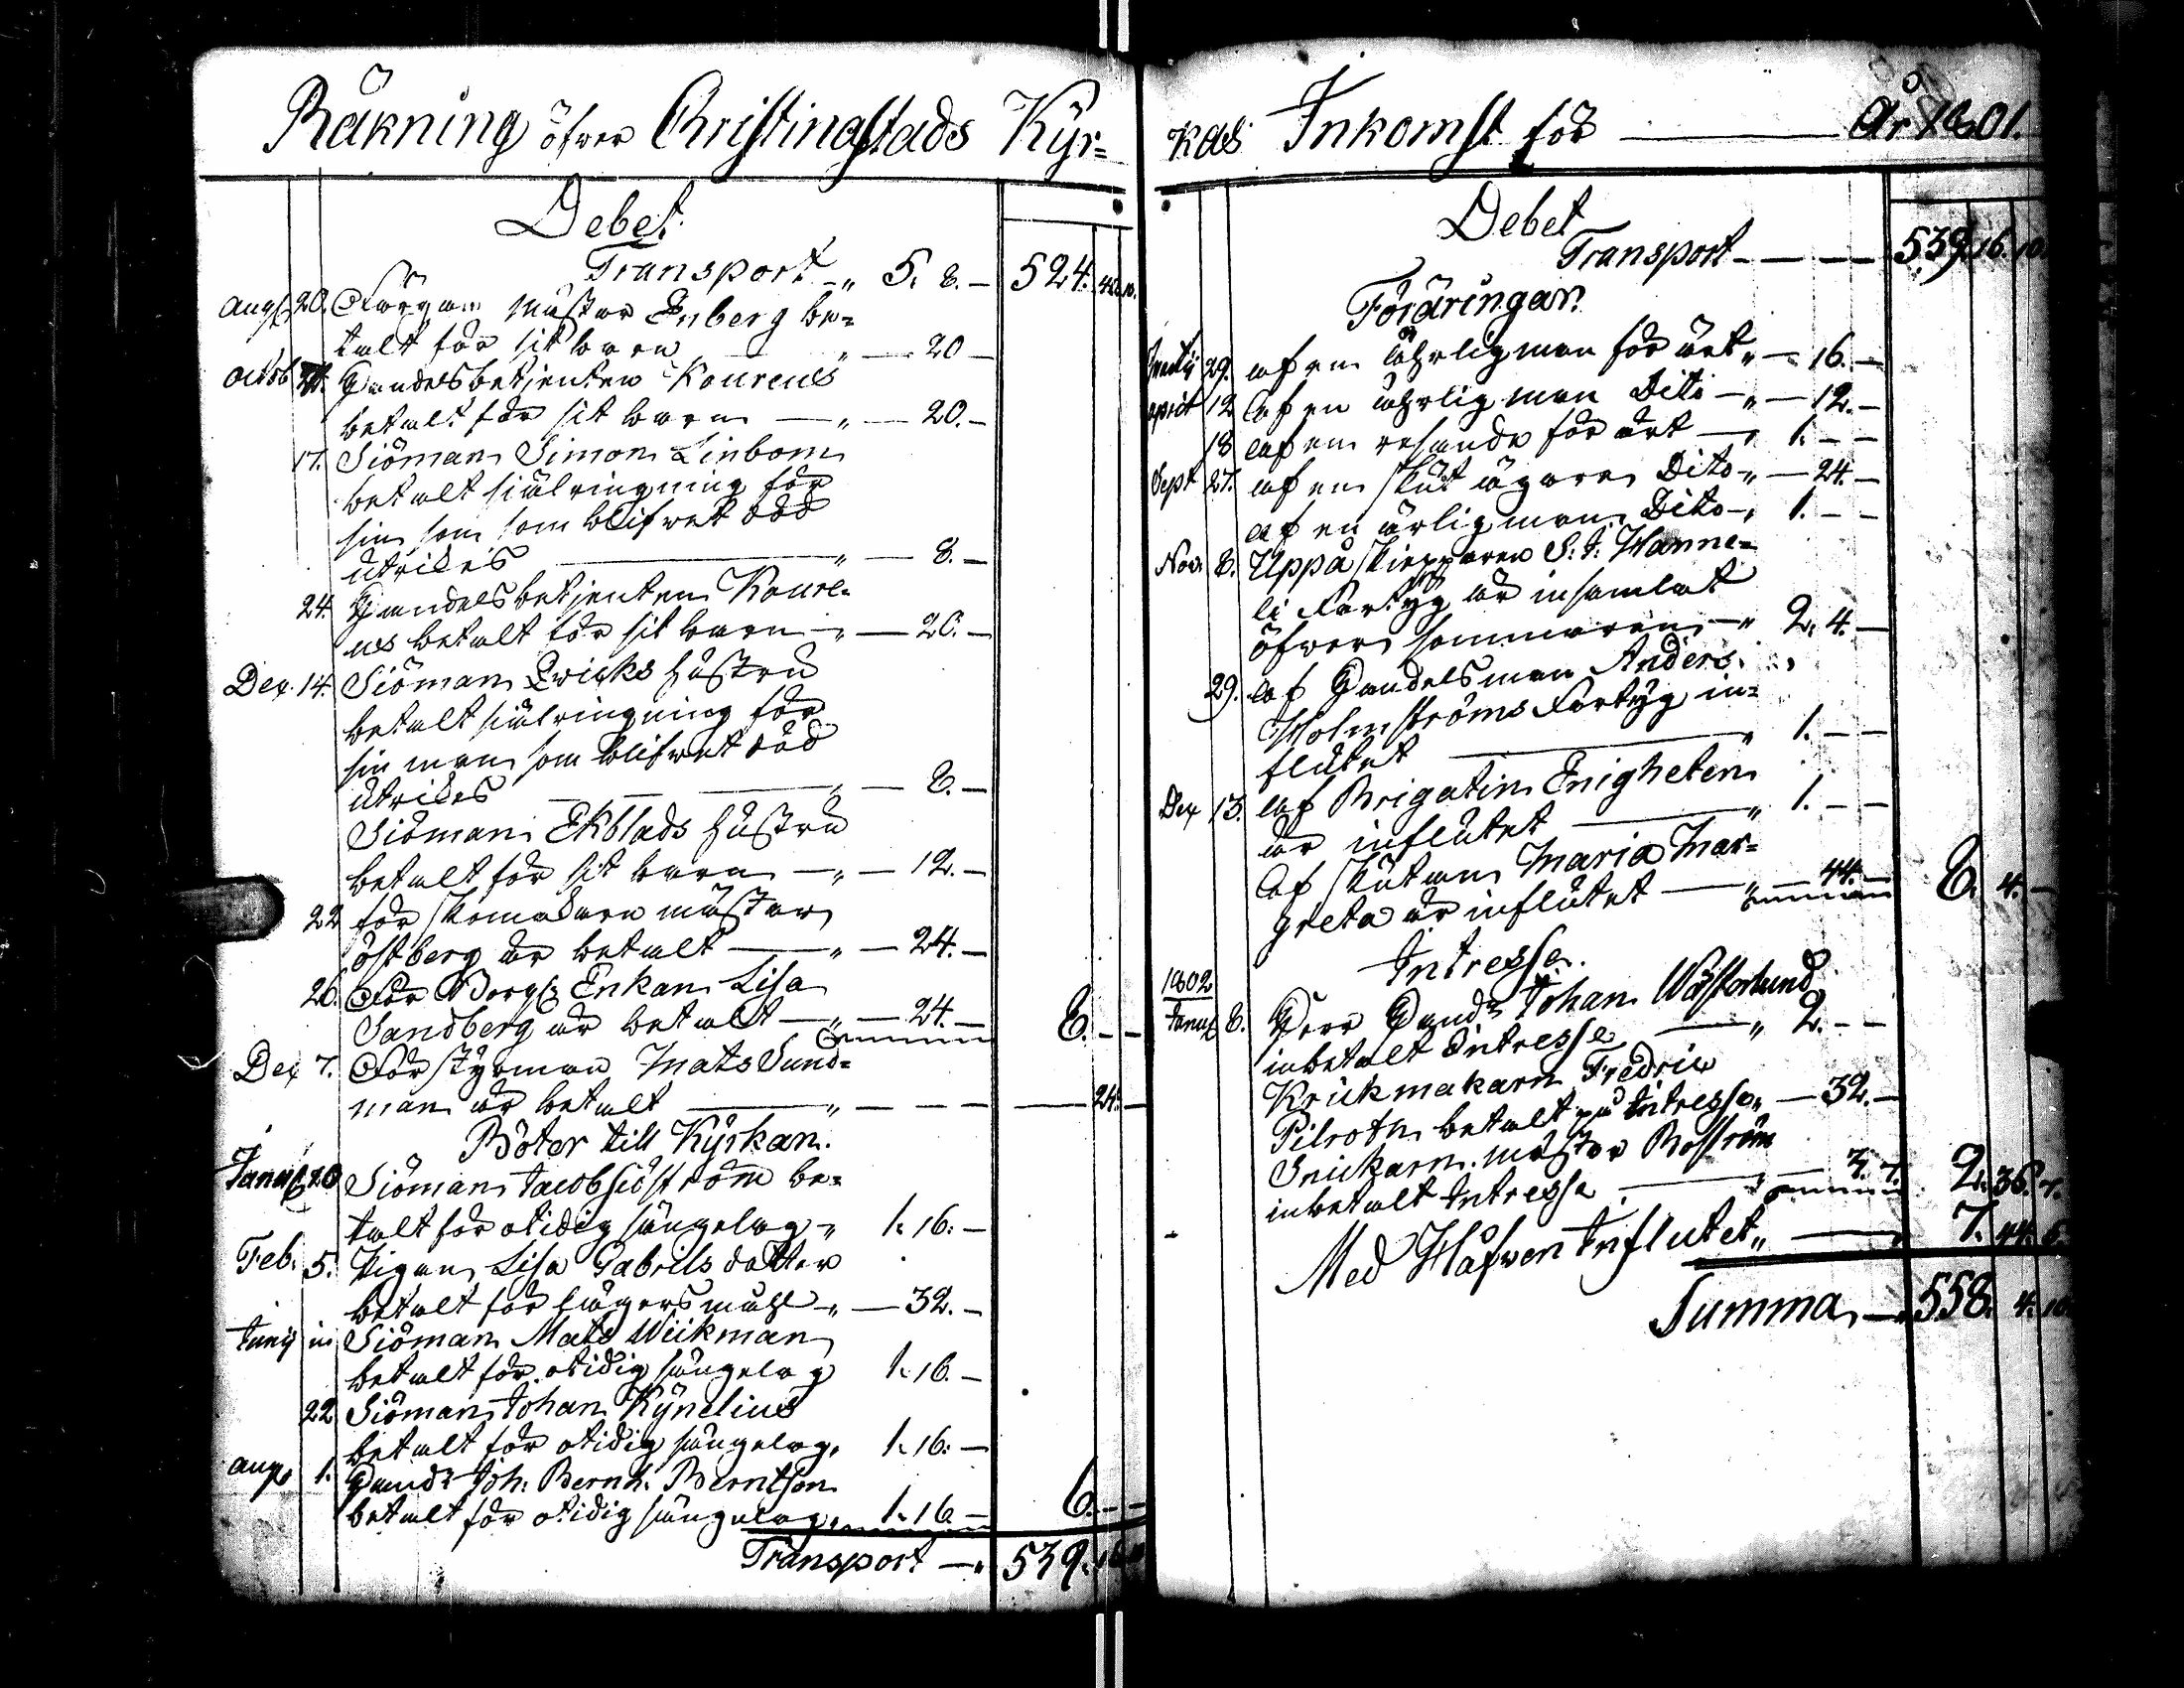 Räkning öfver Christinæstads Kÿr=
Debet
Transport „ 5. 8. — 524. 40. 10.
Aug 20. Färgare Mästar Enberg be=
talt för sit barn „ — 20 —
Octob Handelsbetjenten Koureus
betalt för sit barn — „ — 20. —
17. Siöman Simon Linbom
betalt siälringning för
sin son som blifvet död
utrikes — „ — 8. —
24. Handelsbetjenten Koure=
us betalt för sit barn — „ — 20. —
Dex. 14. Siöman Qvicks hustru
betalt siälringning för
sin man som blifvet död
utrikes — „ — 8. —
Siöman Ekblads hustru
betalt för sit barn — „ — 12. —
22 för skomakare mästar
Östberg är betalt — „ — 24. —
26. För Borg Enkan Lisa
Sandberg är betalt — „ — 24. — 8. — —
Dex 7. För styrman Mats Sund=
man är betalt — „ — — — 24. —
Böter till Kÿrkan.
Janu 20 Siöman Jacob Siöström be=
talt för otidig sängelag „ 1. 16. —
Feb. 5. Pigan Lisa Gabriels dotter
betalt för lägersmåhl „ — 32. —
Junij Siöman Mats Wiikman
betalt för otidig sängelag 1. 16. —
22 Siöman Johan Kÿnelius
betalt för otidig sängelag „ 1. 16. —
Aug 1. Handl Joh. Bernh. Berntson
betalt för otidig sängelag „ 1. 16 — 6. — —
Transport — „ 539. 16. 10
kas Inkomst för — År 1801.
Debet
Transport — — — 539. 16. 10.
Föräringar.
29. af en ährlig man för året „ — 16. —
April 12 af en ährlig man Dito — „ — 12. —
18 af en resande för året — „ 1. — —
Sept 27. af en skut ägare Dito „ — 24. —
af en ärlig man Dito — „ 1. — —
Nov. 8. Uppå skiepparen S. J. Wanne=
li Fartÿg är insamlat
öfver sommaren — „ 2. 4. —
29. af Handelsman Anders
Holmströms Fartÿg in=
flutet — „ 1. — —
Dex 13. af Brigatin Enigheten
är influtet — „ 1. — —
af skutan Maria Mar=
greta är influtet — „ — 44. — 8. 4. —
Intresse.
1802
Janu 8. Herr Handl Johan Wästerlund
inbetalt Intresse — „ 2. — —
Krukmakarn Fredric
Pilroth betalt på Intresse „ — 32. —
Snickarn mästar Boström
inbetalt Intresse — „ — 4. 7. 2. 36. 7.
Med Håfven Influtet „ — 7. 44. 5.
Summa — „ 558. 4. 10